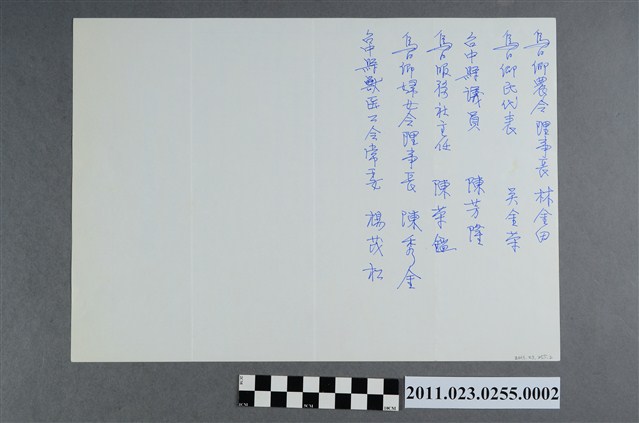 烏日鄉農會理事長 林金田
烏日鄉民代表 吳金荣
台中縣議員 陳芳隆
烏日服務社主任 陳荣鑑
烏日鄉婦女会理事長 陳秀金
台中縣獸医公会常委 楊茂松
2011.023.0255.0002